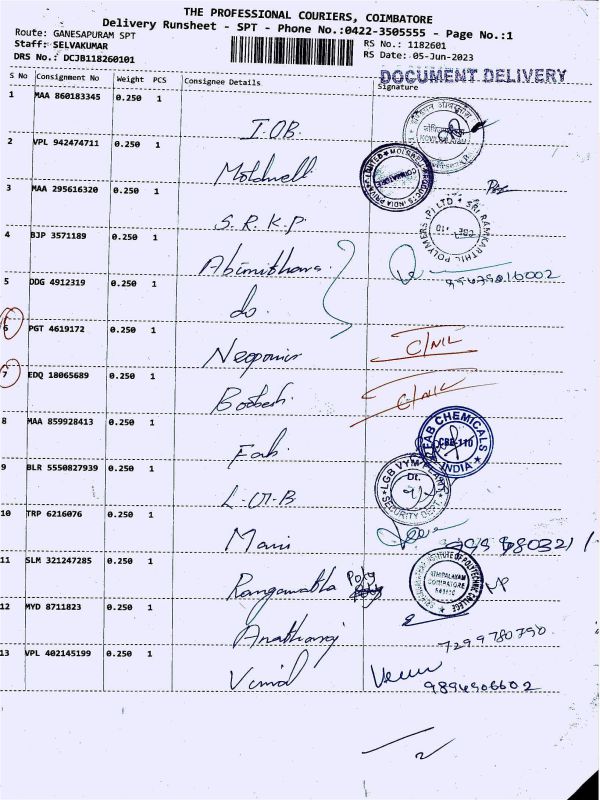 THE PROFESSIONAL COURIERS, COIMBATORE
Delivery Runsheet - SPT - Phone No.:0422-3505555 - Page No.:1
Route: GANESAPURAM SPT
Staff: SELVAKUMAR
DRS No.: DCJB118260101
RS No.: 1182601
RS Date: 05-Jun-2023
DOCUMENT DELIVERY
S No Consignment No Weight PCS Consignee Details Signature
1 MAA 860183345 0.250 1 I.O.B.
2 VPL 942474711 0.250 1 Moldwell
3 MAA 295616320 0.250 1 S.R.K.P
4 BJP 3571189 0.250 1
5 DDG 4912319 0.250 1 do
6 PGT 4619172 0.250 1 C/NIL
7 EDQ 18065689 0.250 1 C/NIL
8 MAA 859928413 0.250 1 Fab FAB CHEMICALS CBE-110 INDIA
9 BLR 5550827939 0.250 1 L.G.B SECURITY DEPT.
10 TRP 6216076 0.250 1 Mani
11 SLM 321247285 0.250 1 Poly
12 MYD 8711823 0.250 1 7299780790
13 VPL 402145199 0.250 1 Vimal 9894906602